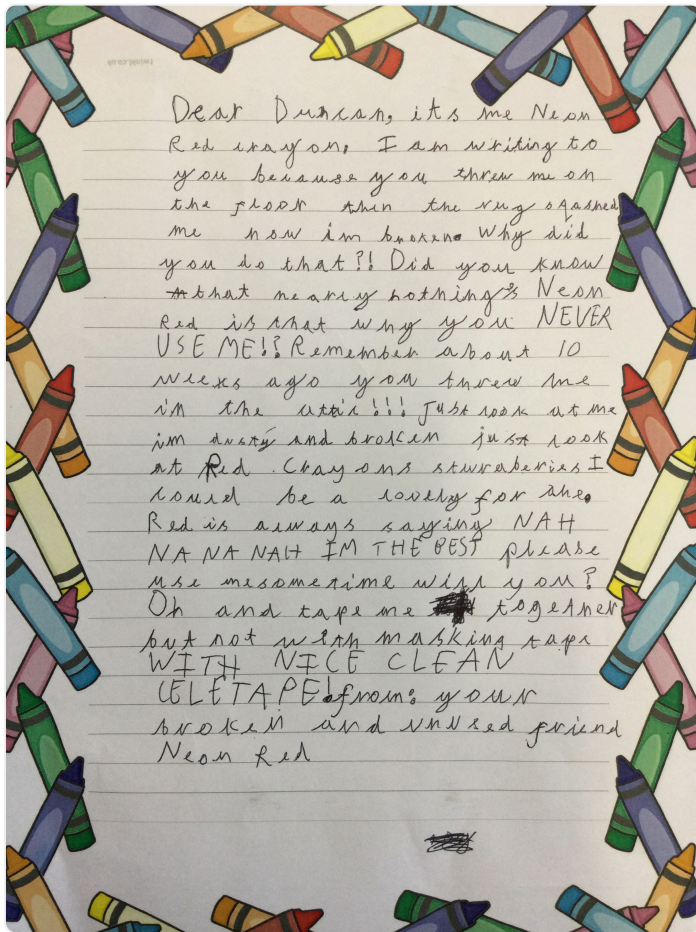 twinkl.co.uk
Dear Duncan, its me Neon
Red crayon, I am writing to
you because you threw me on
the floor then the rug sqashed
me now im broken. Why did
you do that?! Did you know
that nearly nothing's Neon
Red is that why you NEVER
USE ME!? Remember about 10
weeks ago you threw me
in the attic!!! Just look at me
im dusty and broken just look
at Red. Crayons sturaberies I
could be a lovely for the.
Red is always saying NAH
NA NA NAH IM THE BEST please
use mesometime will you?
Oh and tape me together
but not with masking tape
WITH NICE CLEAN
CELETAPE! from: your
broken and unused friend
Neon Red